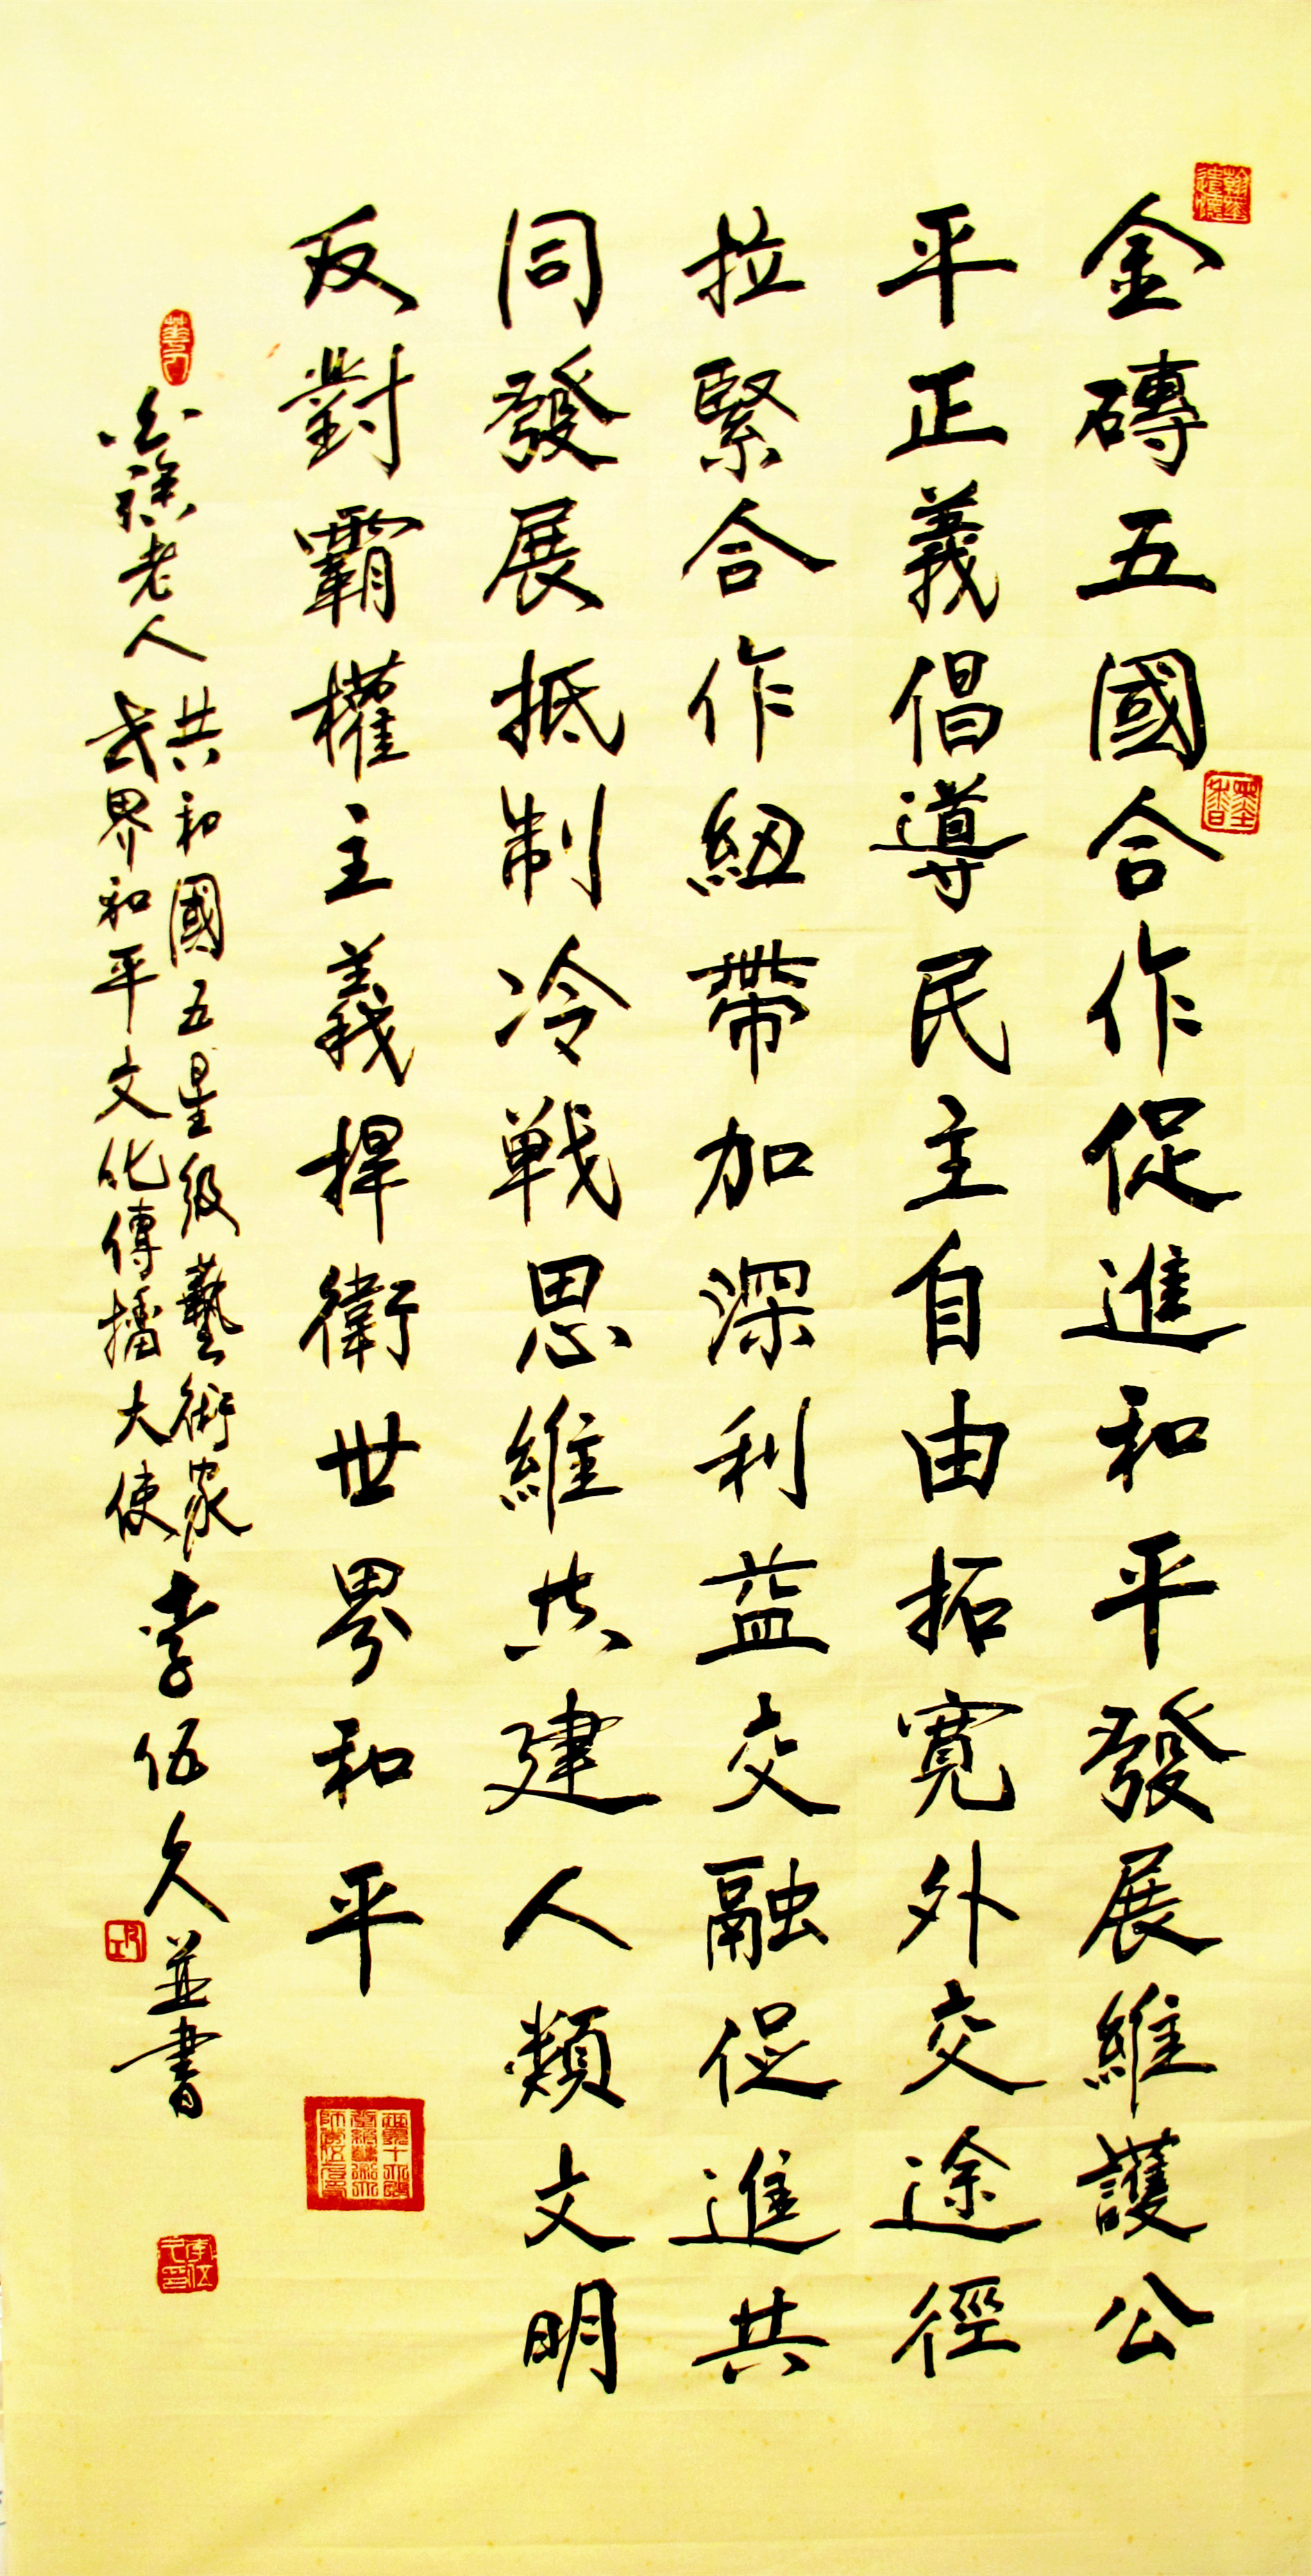 金磚五國合作促進和平發展維護公
平正義倡導民主自由拓寬外交途徑
拉緊合作紐帶加深利益交融促進共
同發展抵制冷戰思維共建人類文明
反對霸權主義捍衛世界和平
老人
共和國五星級藝術家
世界和平文化傳播大使
李伍久並書
墨香